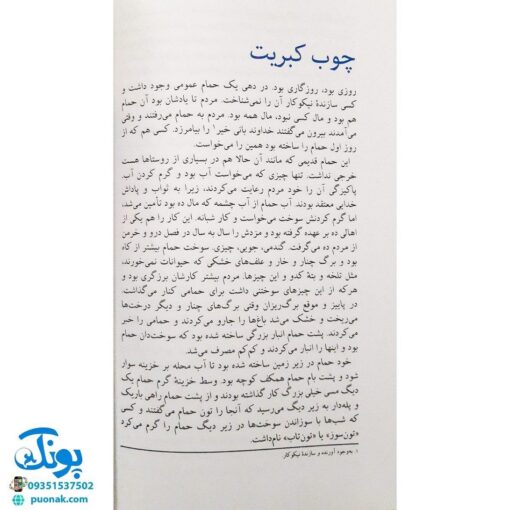 چوب کبریت
روزی بود، روزگاری بود. در دهی یک حمام عمومی وجود داشت و
کسی سازندهٔ نیکوکار آن را نمی‌شناخت. مردم تا یادشان بود آن حمام
هم بود و مال کسی نبود، مال همه بود. مردم به حمام می‌رفتند و وقتی
می‌آمدند بیرون می‌گفتند خداوند بانی خیر۱ را بیامرزد. کسی هم که از
روز اول حمام را ساخته بود همین را می‌خواست.
این حمام قدیمی که مانند آن حالا هم در بسیاری از روستاها هست
خرجی نداشت. تنها چیزی که می‌خواست آب بود و گرم کردن آب.
پاکیزگی آن را خود مردم رعایت می‌کردند، زیرا به ثواب و پاداش
خدایی معتقد بودند. آب حمام از آب چشمه که مال ده بود تأمین می‌شد،
اما گرم کردنش سوخت می‌خواست و کار شبانه. این کار را هم یکی از
اهالی ده بر عهده گرفته بود و مزدش را سال به سال در فصل درو و خرمن
از مردم ده می‌گرفت. گندمی، جویی، چیزی. سوخت حمام بیشتر از کاه
بود و برگ چنار و خار و علف‌های خشکی که حیوانات نمی‌خورند،
مثل تلخه و بتهٔ کدو و این چیزها. مردم بیشتر کارشان برزگری بود و
هرکه از این چیزهای سوختنی داشت برای حمامی کنار می‌گذاشت.
در پاییز و موقع برگ‌ریزان وقتی برگ‌های چنار و دیگر درخت‌ها
می‌ریخت و خشک می‌شد باغ‌ها را جارو می‌کردند و حمامی را خبر
می‌کردند. پشت حمام انبار بزرگی ساخته شده بود که سوخت‌دان حمام
بود و اینها را انبار می‌کردند و کم‌کم مصرف می‌شد.
خود حمام در زیر زمین ساخته شده بود تا آب محله بر خزینه سوار
شود و پشت بام حمام همکف کوچه بود. وسط خزینهٔ گرم حمام یک
دیگ مسی خیلی بزرگ کار گذاشته بودند و از پشت حمام راهی باریک
و پله‌دار به زیر دیگ می‌رسید که آنجا را تون حمام می‌گفتند و کسی
که شب‌ها با سوزاندن سوخت‌ها در زیر دیگ حمام را گرم می‌کرد
«تون‌سوز» یا «تون‌تاب» نام داشت.
۱. به‌وجود آورنده و سازندهٔ نیکوکار
پونک
09351537502
puonak.com